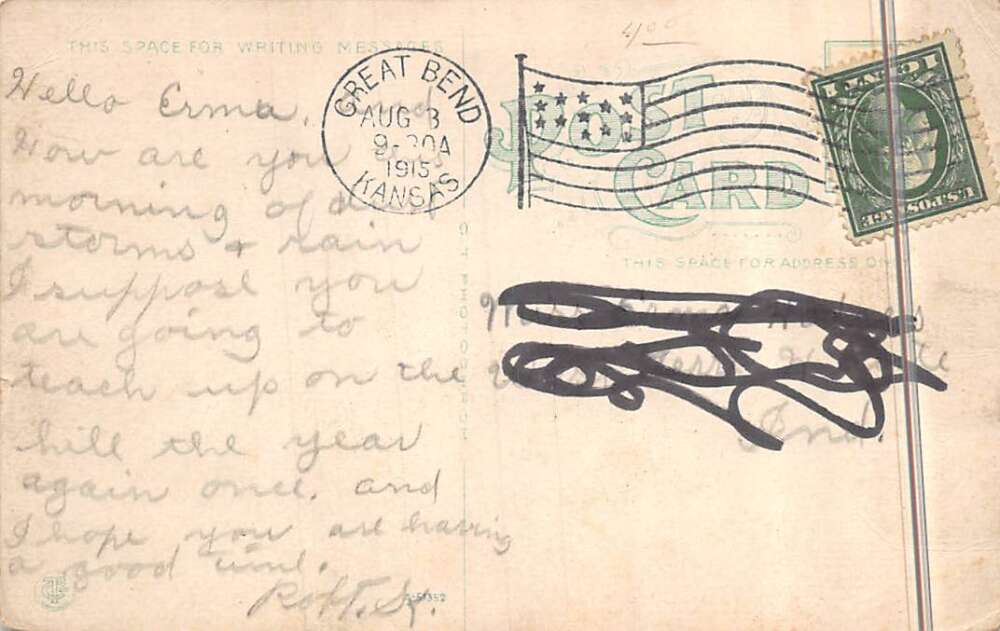 THIS SPACE FOR WRITING MESSAGES
Hello Erma, and
How are you this
morning of dust
storms + rain
I suppose you
are going to
teach up on the
hill the year
again once. and
I hope you are having
a good time.
Robt.
400
GREAT BEND
AUG 3
9-30A
1915
KANSAS
POST CARD
THIS SPACE FOR ADDRESS ON
1 CENT 1
U.S. POSTAGE
Miss Erma
Ind.